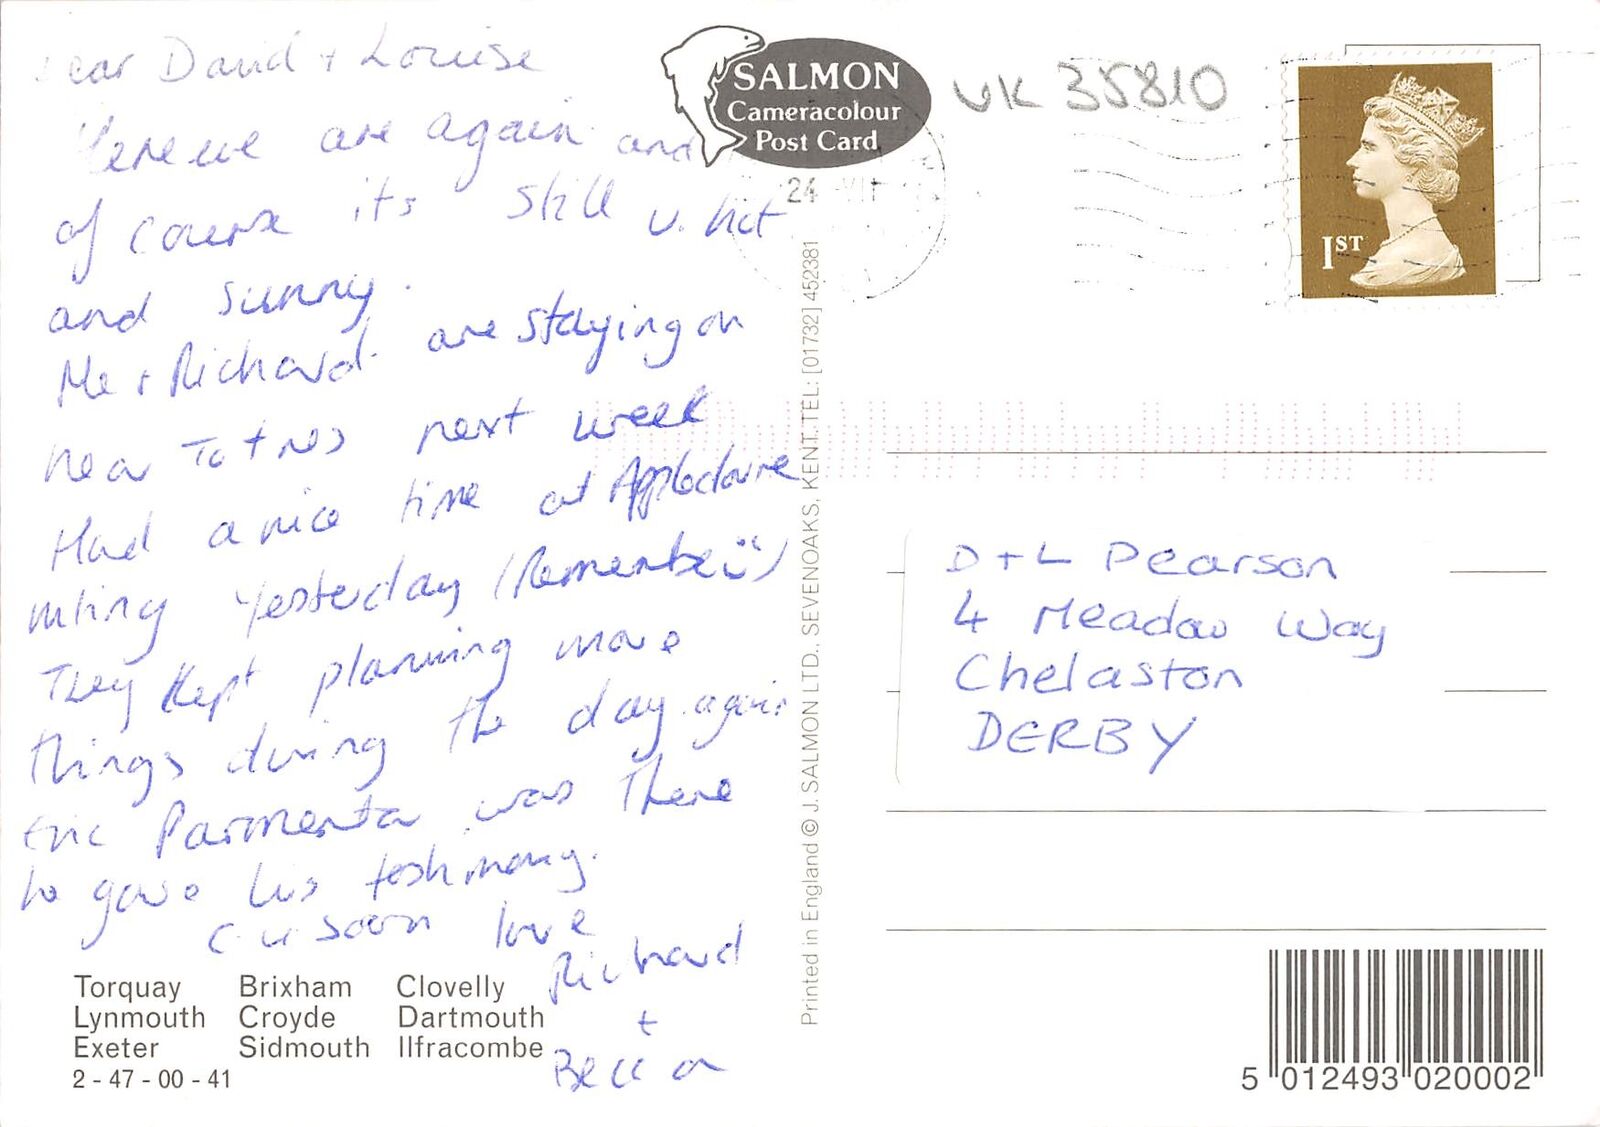 Dear David + Louise
Here we are again and
of course its still v. hot
and sunny.
Me + Richard are staying on
near Totnes next week
Had a nice time at Appledore
mting yesterday (Remember)
They kept planning more
things during the day again
Eric Parmenta was there
he gave his testimony.
C u soon love
Richard
+
Becca
Torquay Brixham Clovelly
Lynmouth Croyde Dartmouth
Exeter Sidmouth Ilfracombe
2 - 47 - 00 - 41
SALMON
Cameracolour
Post Card
UK 35810
24 VII
1ST
Printed in England © J. SALMON LTD., SEVENOAKS, KENT. TEL: [01732] 452381
D + L Pearson
4 Meadow Way
Chelaston
DERBY
5 012493 020002